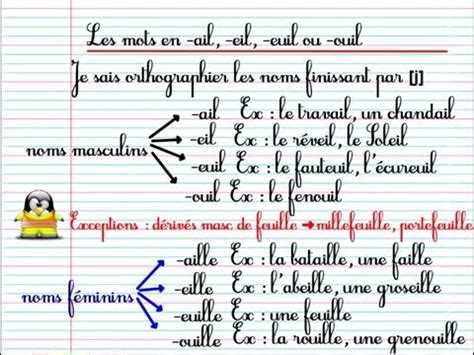 Les mots en -ail, -eil, -euil ou -ouil
Je sais orthographier les noms finissant par [j]
noms masculins
-ail Ex : le travail, un chandail
-eil Ex : le réveil, le Soleil
-euil Ex : le fauteuil, l'écureuil
-ouil Ex : le fenouil
Exceptions : dérivés masc de feuille → millefeuille, portefeuille
noms féminins
-aille Ex : la bataille, une faille
-eille Ex : l'abeille, une groseille
-euille Ex : une feuille
-ouille Ex : la rouille, une grenouille